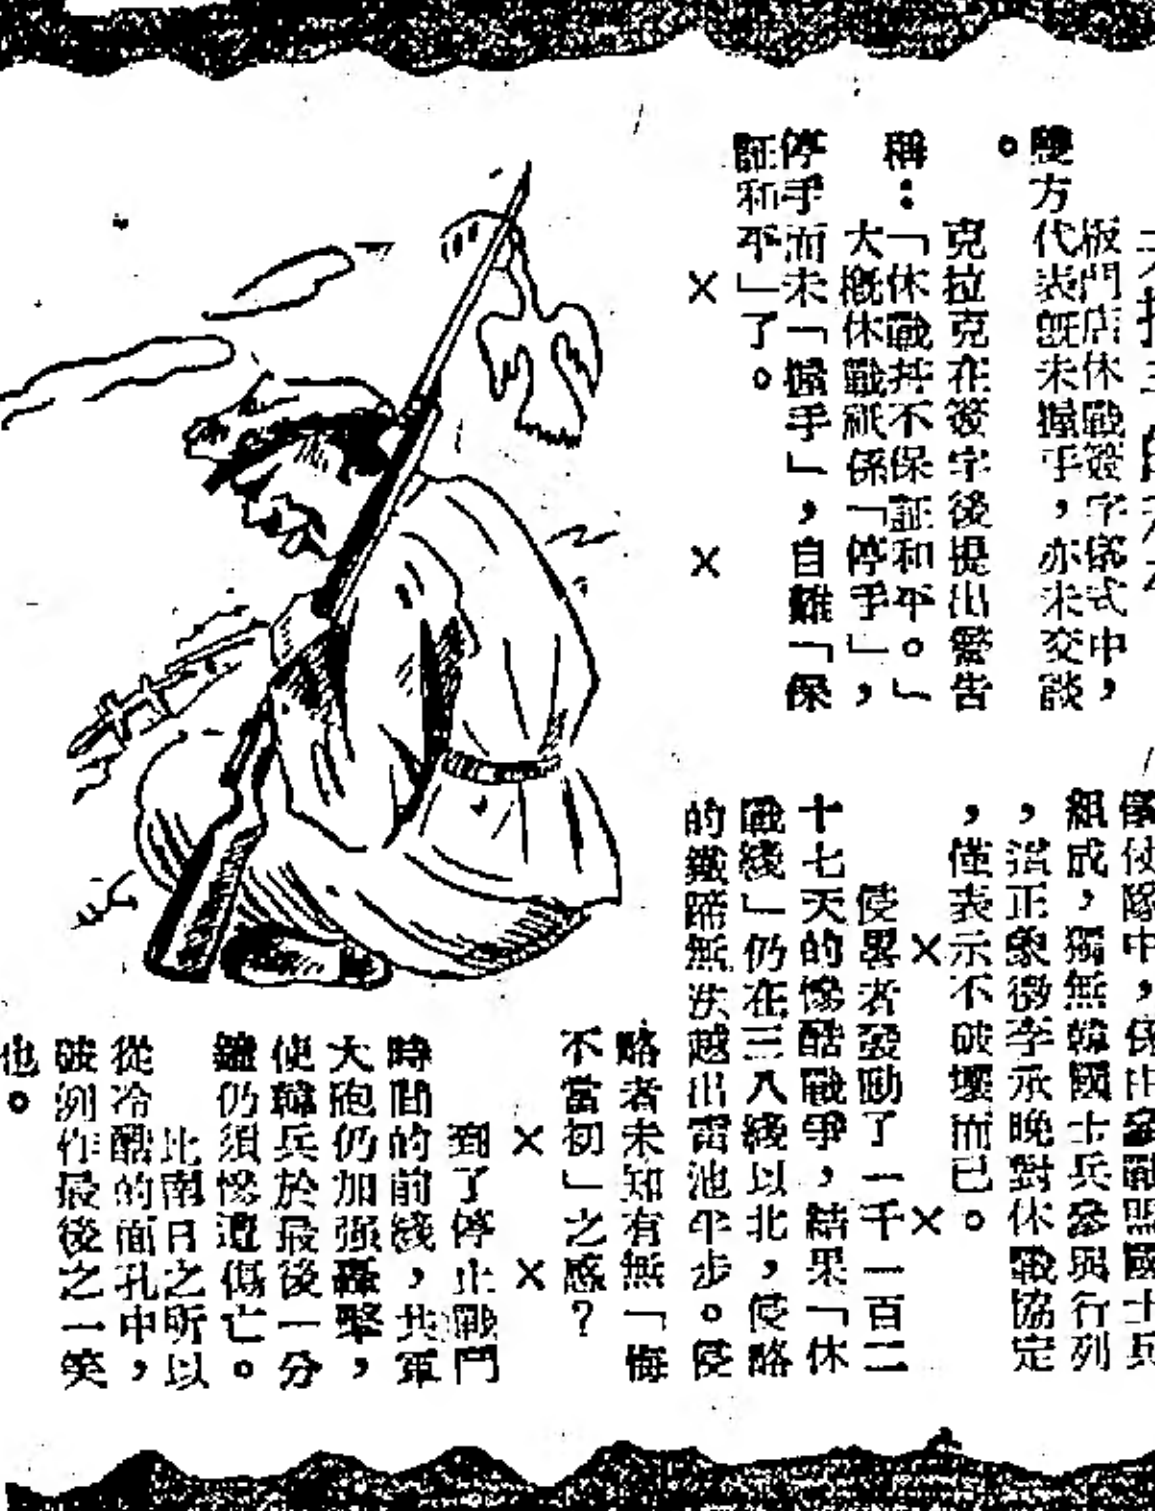 版門店休戰簽字儀式中，
雙方代表既未握手，亦未交談
。
克拉克在簽字後提出警告
稱：「休戰并不保証和平。」
大概休戰祇係「停手」，
停手而未「握手」，自難「保
証和平」了。
× ×
儀仗隊中，係由參戰盟國士兵
組成，獨無韓國士兵參與行列
，猶正象徵李承晚對休戰協定
，僅表示不破壞而已。
× ×
侵畧者發動了一千一百二
十七天的慘酷戰爭，結果「休
戰綫」仍在三八綫以北，侵略
的鐵蹄無法越出雷池半步。侵
略者未知有無「悔
不當初」之感？
× ×
到了停止戰鬥
時間的前綫，共軍
大砲仍加强轟擊，
使韓兵於最後一分
鐘仍須慘遭傷亡。
此南日之所以
從冷酷的面孔中，
破例作最後之一笑
也。